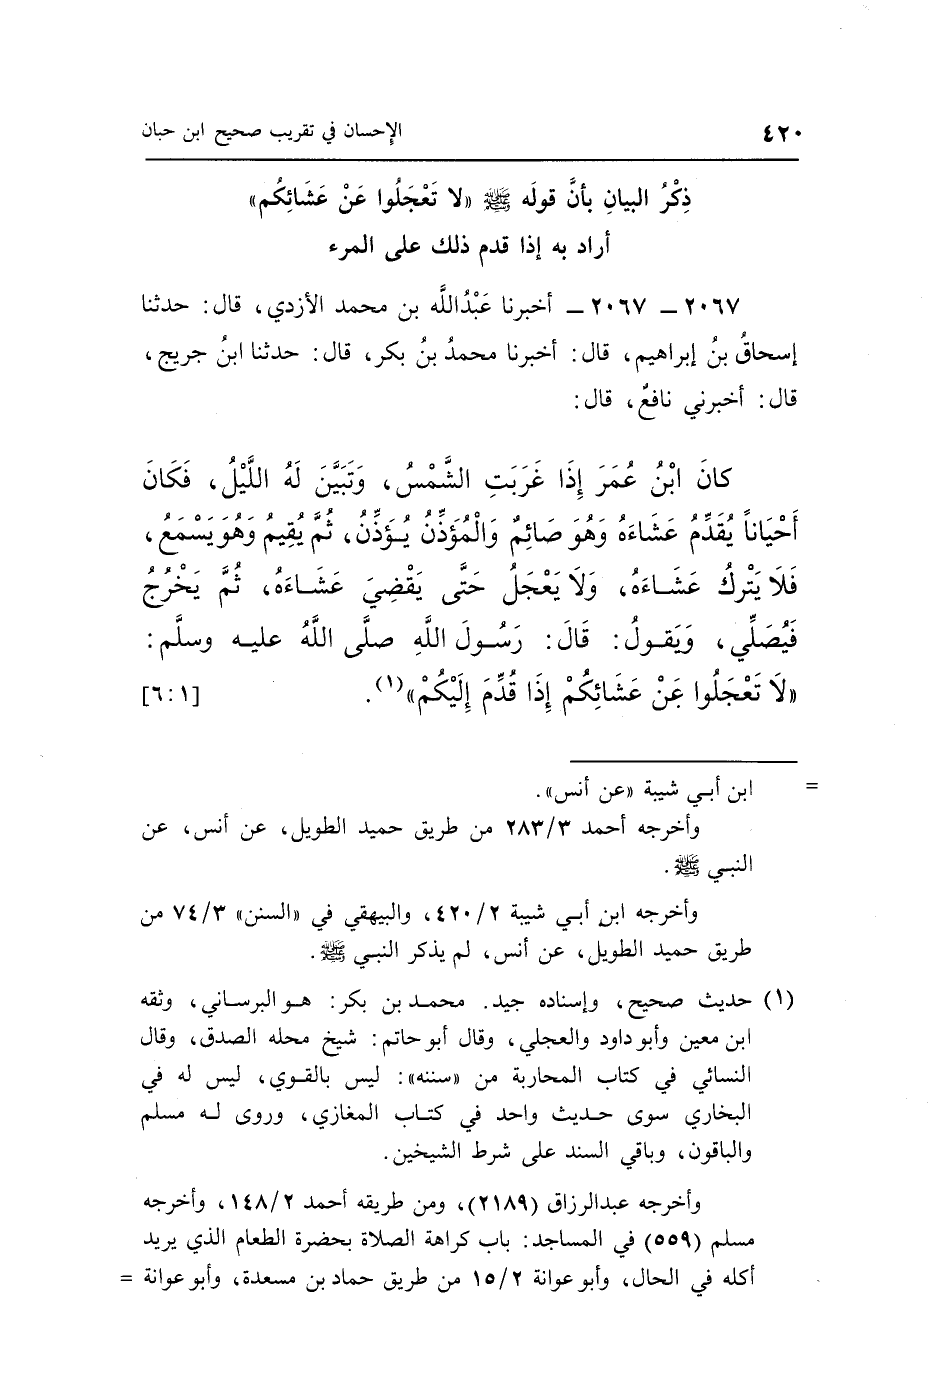 ٤٢٠ الإحسان في تقريب صحيح ابن حبان
ذِكْرُ البيانِ بأنَّ قولَه ﷺ «لا تَعْجَلُوا عَنْ عَشَائِكُم»
أراد به إذا قدم ذلك على المرء
٢٠٦٧ – ٢٠٦٧ – أخبرنا عَبْدُاللَّه بن محمد الأزدي، قال: حدثنا
إسحاقُ بنُ إبراهيم، قال: أخبرنا محمدُ بنُ بكر، قال: حدثنا ابنُ جريج،
قال: أخبرني نافعٌ، قال:
كانَ ابْنُ عُمَرَ إِذَا غَرَبَتِ الشَّمْسُ، وَتَبَيَّنَ لَهُ اللَّيْلُ، فَكَانَ
أَحْيَاناً يُقَدِّمُ عَشَاءَهُ وَهُوَ صَائِمٌ وَالْمُؤَذِّنُ يُؤَذِّنُ، ثُمَّ يُقِيمُ وَهُوَ يَسْمَعُ،
فَلَا يَتْرِكُ عَشَاءَهُ، وَلَا يَعْجَلُ حَتَّى يَقْضِيَ عَشَاءَهُ، ثُمَّ يَخْرُجُ
فَيُصَلِّي، وَيَقولُ: قَالَ: رَسُولَ اللَّهِ صلَّى اللَّهُ عليه وسلَّم:
«لَا تَعْجَلُوا عَنْ عَشَائِكُمْ إِذَا قُدِّمَ إِلَيْكُمْ»(١). [٦:١]
= ابن أبي شيبة «عن أنس».
وأخرجه أحمد ٢٨٣/٣ من طريق حميد الطويل، عن أنس، عن
النبي ﷺ.
وأخرجه ابن أبي شيبة ٤٢٠/٢، والبيهقي في «السنن» ٧٤/٣ من
طريق حميد الطويل، عن أنس، لم يذكر النبي ﷺ.
(١) حديث صحيح، وإسناده جيد. محمد بن بكر: هو البرساني، وثقه
ابن معين وأبو داود والعجلي، وقال أبو حاتم: شيخ محله الصدق، وقال
النسائي في كتاب المحاربة من «سننه»: ليس بالقوي، ليس له في
البخاري سوى حديث واحد في كتاب المغازي، وروى له مسلم
والباقون، وباقي السند على شرط الشيخين.
وأخرجه عبدالرزاق (٢١٨٩)، ومن طريقه أحمد ١٤٨/٢، وأخرجه
مسلم (٥٥٩) في المساجد: باب كراهة الصلاة بحضرة الطعام الذي يريد
أكله في الحال، وأبو عوانة ١٥/٢ من طريق حماد بن مسعدة، وأبو عوانة =